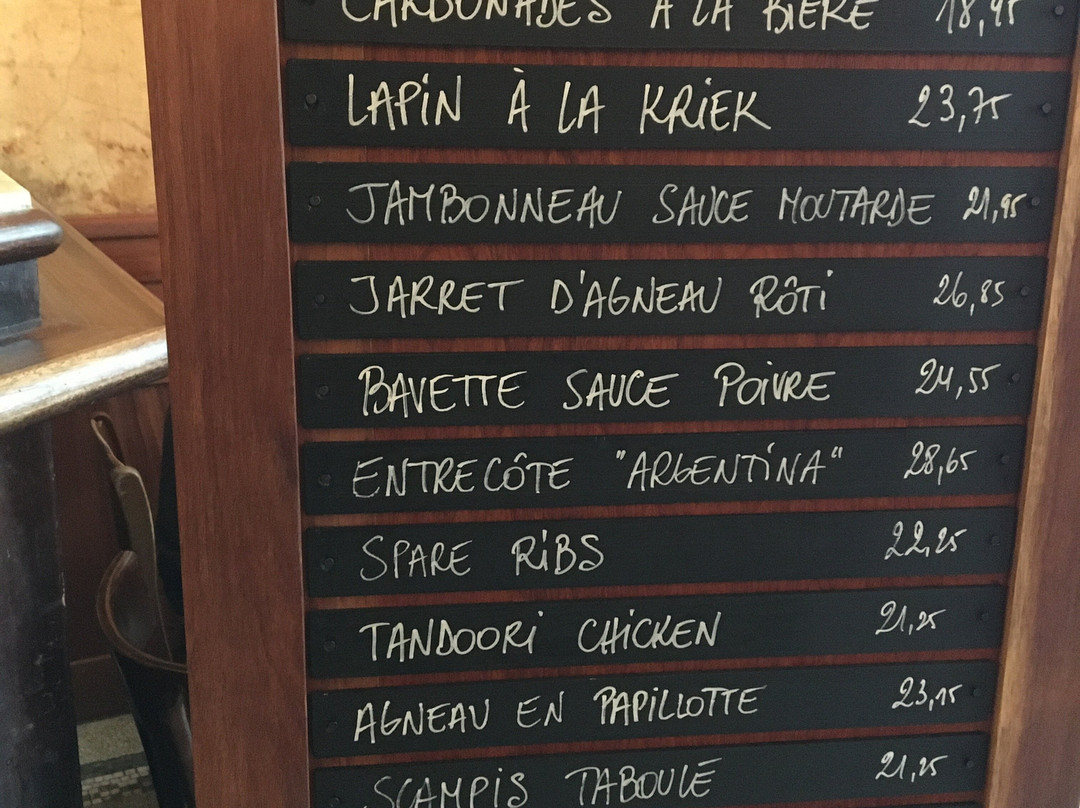 CARBONADES À LA BIÈRE 18,95
LAPIN À LA KRIEK 23,75
JAMBONNEAU SAUCE MOUTARDE 21,95
JARRET D'AGNEAU RÔTI 26,85
BAVETTE SAUCE POIVRE 24,55
ENTRECÔTE "ARGENTINA" 28,65
SPARE RIBS 22,25
TANDOORI CHICKEN 21,25
AGNEAU EN PAPILLOTTE 23,15
SCAMPIS TABOULÉ 21,25